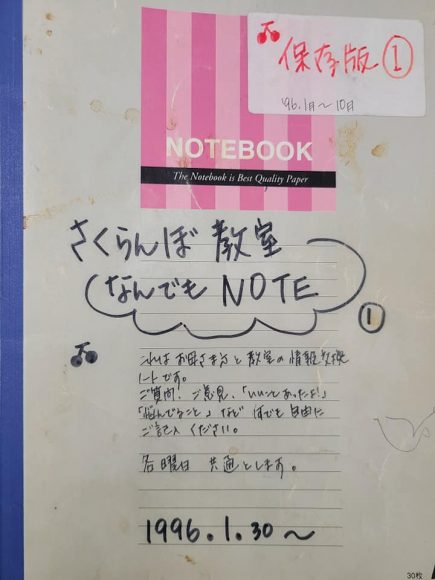 保存版①
'96.1月〜10月
NOTEBOOK
The Notebook is Best Quality Paper
さくらんぼ 教室
なんでも NOTE
①
これは お母さま方と教室の情報交換
ノートです。
ご質問、ご意見、「いいことあったよ!」
「悩んでること」など 何でも自由に
ご記入ください。
各曜日 共通とします。
1996.1.30〜
30枚